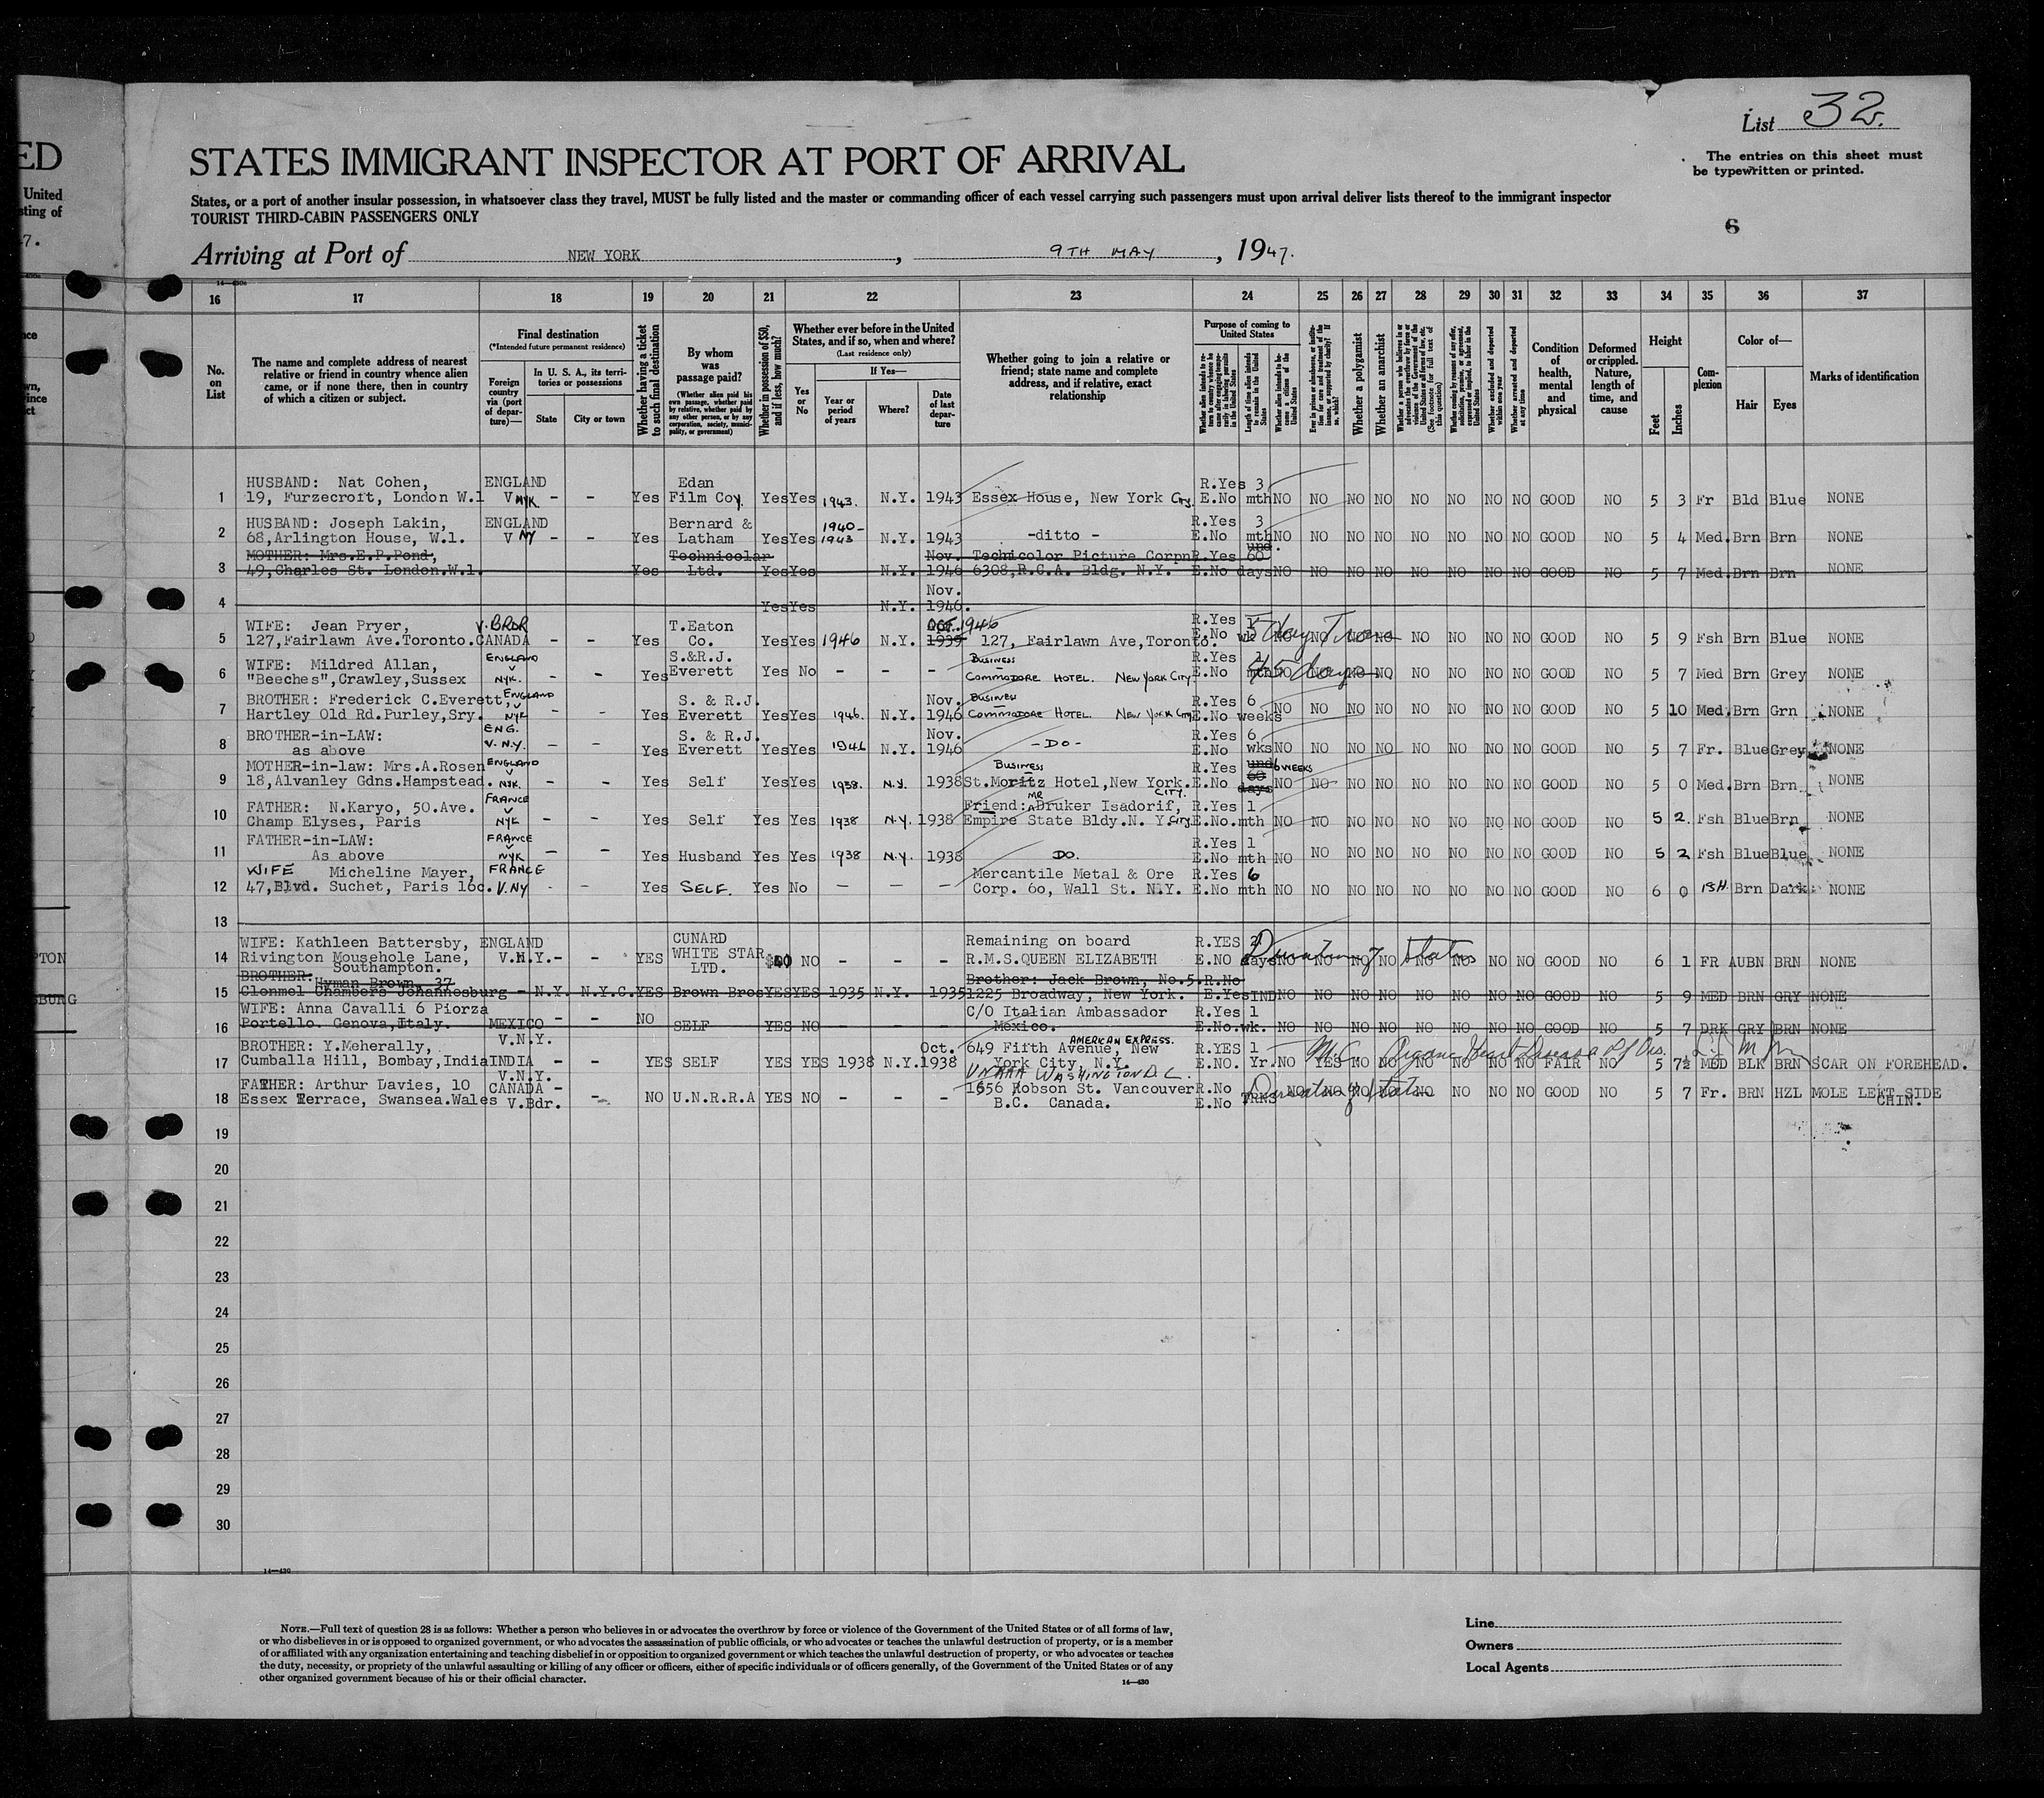 List 32.
ED
STATES IMMIGRANT INSPECTOR AT PORT OF ARRIVAL
The entries on this sheet must
be typewritten or printed.
United
sting of
States, or a port of another insular possession, in whatsoever class they travel, MUST be fully listed and the master or commanding officer of each vessel carrying such passengers must upon arrival deliver lists thereof to the immigrant inspector
TOURIST THIRD-CABIN PASSENGERS ONLY
6
7.
Arriving at Port of NEW YORK, 9TH MAY, 1947.
16 17 18 19 20 21 22 23 24 25 26 27 28 29 30 31 32 33 34 35 36 37
No. on List
The name and complete address of nearest
relative or friend in country whence alien
came, or if none there, then in country
of which a citizen or subject.
Final destination
(*Intended future permanent residence)
Foreign country via (port of departure)—
In U. S. A., its territories or possessions
State
City or town
Whether having a ticket to such final destination
By whom was passage paid?
(Whether alien paid his own passage, whether paid by relative, whether paid by any other person, or by any corporation, society, municipality, or government)
Whether in possession of $50, and if less, how much?
Whether ever before in the United
States, and if so, when and where?
(Last residence only)
Yes or No
If Yes—
Year or period of years
Where?
Date of last departure
Whether going to join a relative or
friend; state name and complete
address, and if relative, exact
relationship
Purpose of coming to United States
Length of time alien intends to remain in the United States
Whether alien intends to become a citizen of the United States
Whether a polygamist
Whether an anarchist
Whether excluded and deported within one year
Whether arrested and deported at any time
Condition of health, mental and physical
Deformed or crippled. Nature, length of time, and cause
Height
Feet
Inches
Complexion
Color of—
Hair
Eyes
Marks of identification
1 HUSBAND: Nat Cohen, ENGLAND Edan R.Yes 3
19, Furzecroft, London W.1 V NYK - - Yes Film Coy. Yes Yes 1943. N.Y. 1943 Essex House, New York City. E.No mth NO NO NO NO NO NO NO NO GOOD NO 5 3 Fr Bld Blue NONE
2 HUSBAND: Joseph Lakin, ENGLAND Bernard & 1940- R.Yes 3
68,Arlington House, W.1. V NY - - Yes Latham Yes Yes 1943 N.Y. 1943 -ditto - E.No mth NO NO NO NO NO NO NO NO GOOD NO 5 4 Med. Brn Brn NONE
3 MOTHER: Mrs.E.P.Pond, Technicolar Nov. Technicolor Picture Corpn R.Yes und. 60
49,Charles St. London.W.1. Yes Ltd. Yes Yes N.Y. 1946 6308,R.C.A. Bldg. N.Y. E.No days NO NO NO NO NO NO NO NO GOOD NO 5 7 Med. Brn Brn NONE
4 Yes Yes N.Y. Nov. 1946.
5 WIFE: Jean Pryer, V. BRDR T.Eaton OCT. 1946 R.Yes 1
127,Fairlawn Ave.Toronto. CANADA - - Yes Co. Yes Yes 1946 N.Y. 1939 127, Fairlawn Ave,Toronto. E.No wk NO NO NO NO NO NO NO NO GOOD NO 5 9 Fsh Brn Blue NONE
6 WIFE: Mildred Allan, ENGLAND S.&R.J. BUSINESS R.Yes 1
"Beeches",Crawley,Sussex V NYK. - - Yes Everett Yes No - - - COMMODORE HOTEL. NEW YORK CITY E.No mth NO 45 days NO NO NO NO NO NO GOOD NO 5 7 Med Brn Grey NONE
7 BROTHER: Frederick C.Everett, ENGLAND S. & R.J. Nov. BUSINESS R.Yes 6
Hartley Old Rd.Purley,Sry. V NYK - - Yes Everett Yes Yes 1946. N.Y. 1946 COMMODORE HOTEL. NEW YORK CITY E.No weeks NO NO NO NO NO NO NO NO GOOD NO 5 10 Med. Brn Grn NONE
8 BROTHER-in-LAW: ENG. S. & R.J. Nov. R.Yes 6
as above V. N.Y. - - Yes Everett Yes Yes 1946 N.Y. 1946 -DO- E.No wks NO NO NO NO NO NO NO NO GOOD NO 5 7 Fr. Blue Grey NONE
9 MOTHER-in-law: Mrs.A.Rosen ENGLAND BUSINESS R.Yes und 60 days 6 WEEKS
18,Alvanley Gdns.Hampstead. V NYK. - - Yes Self Yes Yes 1938. N.Y. 1938 St.Moritz Hotel,New York. CITY. E.No NO NO NO NO NO NO NO NO GOOD NO 5 0 Med. Brn Brn NONE
10 FATHER: N.Karyo, 50.Ave. FRANCE Friend: MR Druker Isadorif, R.Yes 1
Champ Elyses, Paris V NYK - - Yes Self Yes Yes 1938 N.Y. 1938 Empire State Bldy.N. Y. City E.No.mth NO NO NO NO NO NO NO NO GOOD NO 5 2. Fsh Blue Brn NONE
11 FATHER-in-LAW: FRANCE R.Yes 1
As above V NYK - - Yes Husband Yes Yes 1938 N.Y. 1938 DO. E.No mth NO NO NO NO NO NO NO NO GOOD NO 5 2 Fsh Blue Blue NONE
12 WIFE Micheline Mayer, FRANCE Mercantile Metal & Ore R.Yes 6
47,Blvd. Suchet, Paris 16c. V. NY - - Yes SELF. Yes No - - - Corp. 60, Wall St. N.Y. E.No mth NO NO NO NO NO NO NO NO GOOD NO 6 0 Brn Dark NONE
13
PTON
14 WIFE: Kathleen Battersby, ENGLAND CUNARD Remaining on board R.YES 21
Rivington Mousehole Lane, V.N.Y. - - YES WHITE STAR NO - - - R.M.S.QUEEN ELIZABETH E.NO days NO Duration of Status NO NO NO NO NO NO NO GOOD NO 6 1 FR AUBN BRN NONE
Southampton. LTD.
SBURG
15 BROTHER: Hyman Brown, 37 Brother: Jack Brown, No.5. R.No
Clonmel Chambers Johannesburg - N.Y. N.Y.C. YES Brown Bros YES YES 1935 N.Y. 1935 1225 Broadway, New York. E.Yes IND NO NO NO NO NO NO NO NO GOOD NO 5 9 MED BRN GRY NONE
16 WIFE: Anna Cavalli 6 Piorza C/O Italian Ambassador R.Yes 1
Portello. Genova,Italy. MEXICO - - NO SELF YES NO - - - Mexico. E.No.wk. NO NO NO NO NO NO NO NO GOOD NO 5 7 DRK GRY BRN NONE
17 BROTHER: Y.Meherally, V.N.Y. Oct. 649 Fifth Avenue, New AMERICAN EXPRESS. R.YES 1 Organic Heart Disease
Cumballa Hill, Bombay,India INDIA - - YES SELF YES YES 1938 N.Y. 1938 York City, N.Y. E.NO. Yr. NO YES NO NO NO NO NO NO FAIR NO 5 7½ MED BLK BRN SCAR ON FOREHEAD.
UNRRA WASHINGTON D.C.
18 FATHER: Arthur Davies, 10 V.N.Y. CANADA - 1656 Robson St. Vancouver R.No Duration of Status
Essex Terrace, Swansea.Wales V.Bdr. - NO U.N.R.R.A YES NO - - - B.C. Canada. E.No TRNS NO NO NO NO NO NO NO NO GOOD NO 5 7 Fr. BRN HZL MOLE LEFT SIDE
CHIN.
19
20
21
22
23
24
25
26
27
28
29
30
14—430
NOTE.—Full text of question 28 is as follows: Whether a person who believes in or advocates the overthrow by force or violence of the Government of the United States or of all forms of law,
or who disbelieves in or is opposed to organized government, or who advocates the assassination of public officials, or who advocates or teaches the unlawful destruction of property, or is a member
of or affiliated with any organization entertaining and teaching disbelief in or opposition to organized government or which teaches the unlawful destruction of property, or who advocates or teaches
the duty, necessity, or propriety of the unlawful assaulting or killing of any officer or officers, either of specific individuals or of officers generally, of the Government of the United States or of any
other organized government because of his or their official character.
14—430
Line
Owners
Local Agents